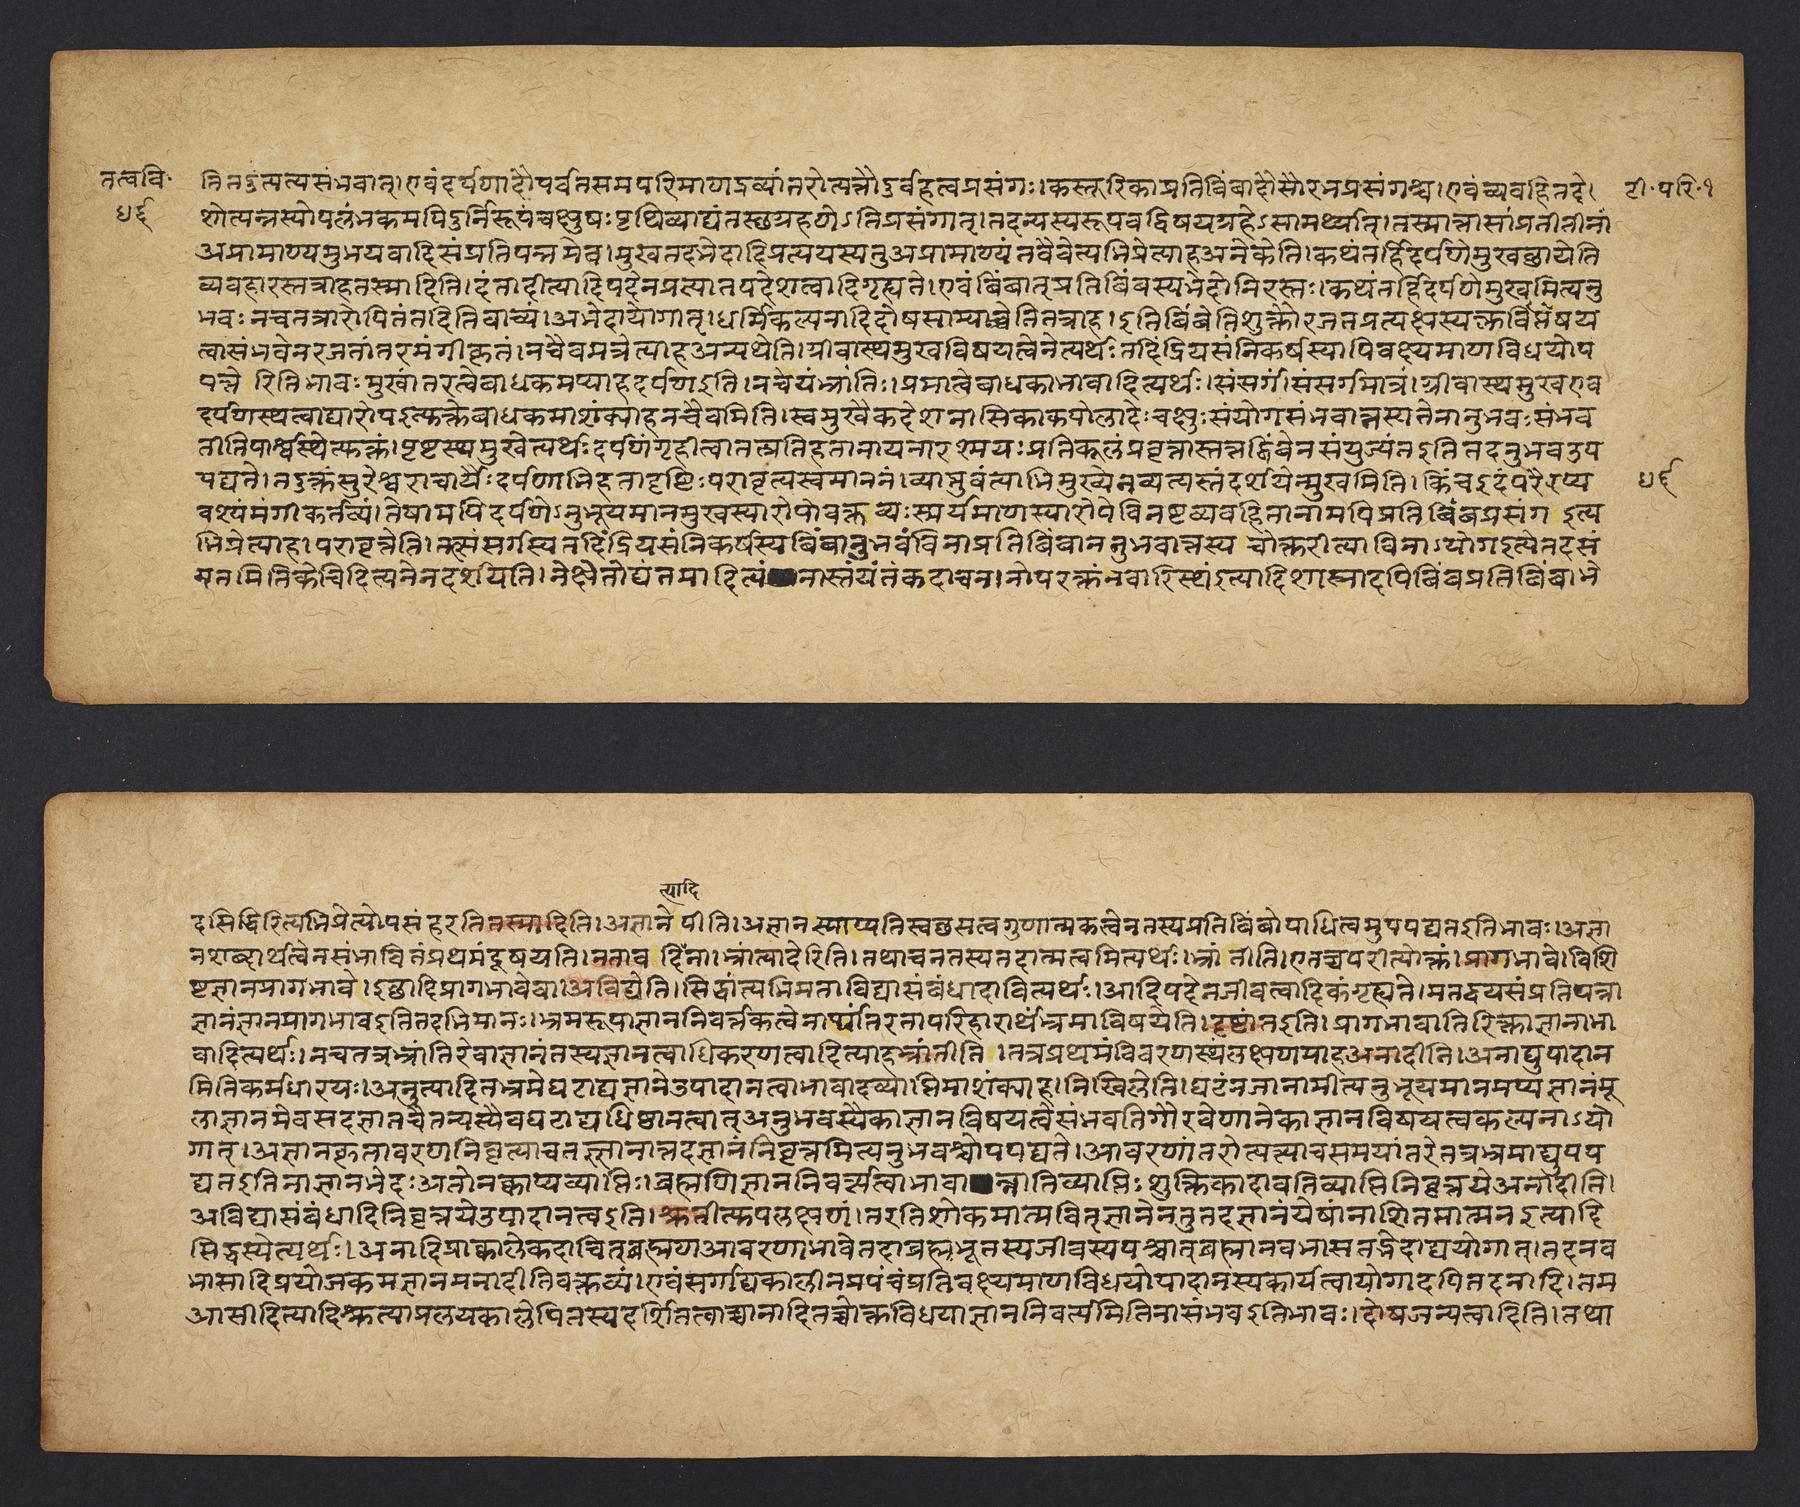 तत्ववि·
५६
टी·परि·१
तिनउत्पत्यसंभवात्।एवंदर्पणादौपर्वतसमपरिमाणद्रव्यांतरोत्पत्तौउर्वहत्वप्रसंगः।कस्तूरिकाप्रतिबिंबादौसौरभप्रसंगश्च।एवंव्यवहितदे।
शोत्पन्नस्योपलंभकमपिदुर्निरूपंचक्षुषःपृथिव्याद्यंतस्छग्रहणेऽतिप्रसंगात्।तदन्यस्यरूपवद्विषयग्रहेऽसामर्थ्यात्।तस्मान्नासांप्रतीतीनां
अप्रामाण्यमुभयवादिसंप्रतिपन्नमेव।मुखतद्भेदादिप्रत्ययस्यतुअप्रामाण्यंतवैवेत्यभिप्रेत्याहअनेकेति।कथंतर्हिदर्पणेमुखछायेति
व्यवहारस्तत्राहतस्मादिति।दंतादीत्यादिपदेनप्रत्यात्तपदेशत्वादिगृह्यते।एवंबिंबात्प्रतिबिंबस्यभेदोनिरस्तः।कथंतर्हिदर्पणेमुखमित्यनु
भवःनचतत्रारोपितंतदितिवाच्यं।अभेदायोगात्।धर्मिकल्पनादिदोषसाम्याच्चेतितत्राह।इतिबिंबेतिशुक्तौरजतप्रत्यक्षस्यक्तर्विप्तेषय
त्वासंभवेनरजतांतरमंगीकृतं।नचैवमत्रेत्याहअन्यथेति।ग्रीवास्थमुखविषयत्वेनेत्यर्थःतदिंद्रियसंनिकर्षस्यापिवक्ष्यमाणविधयोप
पत्ते रितिभावःमुखांतरत्वेबाधकमप्याहदर्पणइति।नचेयंभ्रांतिः।प्रमात्वेबाधकाभावादित्यर्थः।संसर्गासंसर्गमात्रं।ग्रीवास्थमुखएव
दर्पणस्थत्वाद्यारोपइत्युक्तेबाधकमाशंक्याहनचैवमिति।स्वमुखैकदेशनासिकाकपोलादेःचक्षुःसंयोगसंभवात्तस्यतेनानुभवःसंभव
तीतिपार्श्वस्थेत्युक्तं।पृष्टस्थमुखेत्यर्थःदर्पणंगृहीत्वातत्प्रतिहतानायनारश्मयःप्रतिकूलंप्रवृत्तास्तत्तद्बिंबेनसंयुज्यंतइतितदनुभवउप
पद्यते।तदुक्तंसुरेश्वराचार्यैःदर्पणाभिहतादृष्टिःपरावृत्यस्वमाननं।व्याप्नुवंत्याभिमुख्येनव्यत्यस्तंदर्शयेन्मुखमिति।किंचइदंपरैरप्य
५६
वश्यंमंगीकर्तव्यं।तेषामपिदर्पणेऽनुभूयमानमुखस्यारोपोवक्त व्यःस्मर्यमाणस्यारोपेविनष्टव्यवहितानामपिप्रतिबिंबप्रसंग इत्य
भिप्रेत्याह।परावृत्तेति।नत्संसर्गस्यतदिंद्रियसंनिकर्षस्यबिंबानुभवंविनाप्रतिबिंबाननुभवात्तस्य चोक्तरीत्याविनाऽयोगइत्येतदसं
मतमितिकेचिदित्यनेनदर्शयति।नेक्षेतोद्यंतमादित्यंनास्तंयंतंकदाचन।नोपरक्तंनवारिस्थंइत्यादिशास्त्रादपिबिंबप्रतिबिंबाभे
त्यादि
दसिद्धिरित्यभिप्रेत्योपसंहरतितस्मादिति।अज्ञाने पीति।अज्ञानस्याप्यतिस्वछसत्वगुणात्मकत्वेनतस्यप्रतिबिंबोपाधित्वमुपपद्यतइतिभावः।अज्ञा
नशब्दार्थत्वेनसंभावितंप्रथमंदूषयति।नताव दिंना।भ्रांत्यादेरिति।तथाचनतस्यतदात्मत्वमित्यर्थः।भ्रां तीति।एतच्चपरीत्योक्तं।प्रागभावे।विशि
ष्टज्ञानप्रागभावे।इछादिप्रागभावेवा।अविद्येति।सिद्धांत्यभिमताविद्यासंबंधादावित्यर्थः।आदिपदेनजीवत्वादिकंगृह्यते।मतद्वयसंप्रतिपन्ना
ज्ञानंज्ञानप्रागभावइतितदभिमानः।भ्रमरूपाज्ञाननिवर्तकत्वेनाप्यंतिरतापरिहारार्थंभ्रमाविषयेति।दृष्टांतइति।प्रागभावातिरिक्ताज्ञानाभा
वादित्यर्थः।नचतत्रभ्रांतिरेवाज्ञानंतस्यज्ञानत्वाधिकरणत्वादित्याहभ्रांतीति ।तत्रप्रथमंविवरणस्थंलक्षणमाहअनादीति।अनाद्युपादान
मितिकर्मधारयः।अनुत्पादितभ्रमेघटाद्यज्ञानेउपादानत्वाभावादव्याप्तिमाशंक्याह।निखिलेति।घटंनजानामीत्यनुभूयमानमप्यज्ञानंमू
लाज्ञानमेवसदज्ञातचैतन्यस्यैवघटाद्यधिष्ठानत्वात्अनुभवस्यैकाज्ञानविषयत्वेसंभवतिगौरवेणानेकाज्ञानविषयत्वकल्पनाऽयो
गात्।अज्ञानकृतावरणनिवृत्याचतज्ज्ञानात्तदज्ञानंनिवृत्तमित्यनुभवश्चोपपद्यते।आवरणांतरोत्पत्याचसमयांतरेतत्रभ्रमाद्युपप
द्यतइतिनाज्ञानभेदःअतोनक्वाप्यव्याप्तिः।ब्रह्मणिज्ञाननिवर्त्यत्वाभावान्नातिव्याप्तिःशुक्तिकादावतिव्याप्तिनिवृत्तयेअनादीति।
अविद्यासंबंधादिनिवृत्तयेउपादानत्वइति।क्तमीत्यपलक्षणं।तरतिशोकमात्मवित्ज्ञानेनतुतदज्ञानंयेषांनाशितमात्मनइत्यादि
सिद्धस्येत्यर्थः।अनादिप्राक्कालेकदाचित्ब्रह्मणआवरणाभावेतदाब्रह्मभूतस्यजीवस्यपश्चात्ब्रह्मानवभासतद्भेदाद्ययोगात्।तदनव
भासादिप्रयोजकमज्ञानमनादीतिवक्तव्यं।एवंसर्गाद्यकालीनप्रपंचंप्रतिवक्ष्यमाणविधयोपादानस्यकार्यत्वायोगादपितदनादि।तम
आसीदित्यादिश्रुत्याप्रलयकालेपितस्यदर्शितत्वाच्चानादितच्चोक्तविधयाज्ञाननिवर्त्यमितिनासंभवइतिभावः।दोषजन्यत्वादिति।तथा